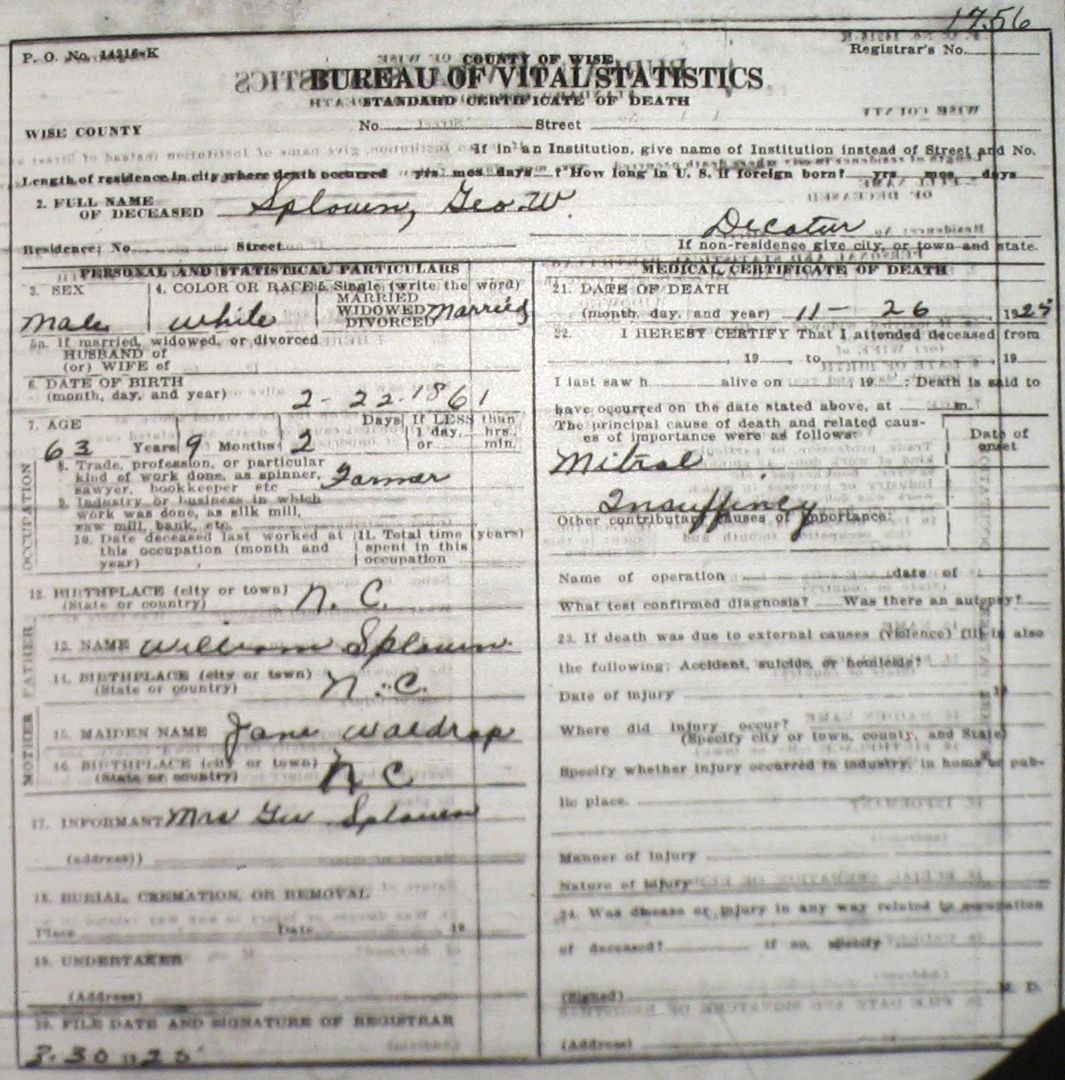 1756
P. O. No. 14216-K
COUNTY OF WISE
Registrar's No.
BUREAU OF VITAL STATISTICS
STANDARD CERTIFICATE OF DEATH
WISE COUNTY
No. Street
If in an Institution, give name of Institution instead of Street and No.
Length of residence in city where death occurred yrs mos days ? How long in U. S. if foreign born? yrs mos days
2. FULL NAME
OF DECEASED Splouin, Geo. W.
Decatur
Residence: No. Street
If non-residence give city, or town and state.
PERSONAL AND STATISTICAL PARTICULARS
3. SEX
Male
4. COLOR OR RACE
White
5. Single (write the word)
MARRIED
WIDOWED
DIVORCED Married
5a. If married, widowed, or divorced
HUSBAND of
(or) WIFE of
6. DATE OF BIRTH
(month, day, and year) 2-22-1861
7. AGE
63 Years 9 Months 2 Days
If LESS than
1 day, hrs.
or min.
OCCUPATION
8. Trade, profession, or particular
kind of work done, as spinner,
sawyer, bookkeeper etc Farmer
9. Industry or business in which
work was done, as silk mill,
saw mill, bank, etc.
10. Date deceased last worked at
this occupation (month and
year)
11. Total time (years)
spent in this
occupation
12. BIRTHPLACE (city or town)
(State or country) N. C.
FATHER
13. NAME William Splouin
14. BIRTHPLACE (city or town)
(State or country) N. C.
MOTHER
15. MAIDEN NAME Jane Waldrop
16. BIRTHPLACE (city or town)
(State or country) N C
17. INFORMANT Mrs Geo Splouin
(address))
18. BURIAL, CREMATION, OR REMOVAL
Place Date 19
19. UNDERTAKER
(Address)
20. FILE DATE AND SIGNATURE OF REGISTRAR
3-30 1925
MEDICAL CERTIFICATE OF DEATH
21. DATE OF DEATH
(month, day, and year) 11-26, 192
22. I HEREBY CERTIFY That I attended deceased from
, 19 , to , 19
I last saw h alive on 19 : Death is said to
have occurred on the date stated above, at m.
The principal cause of death and related caus-
es of importance were as follows:
Date of
onset
Mitral
Insuffincy
Other contributary causes of importance:
Name of operation date of
What test confirmed diagnosis? Was there an autopsy?
23. If death was due to external causes (violence) fill in also
the following: Accident, suicide, or homicide?
Date of injury 19
Where did injury occur?
(Specify city or town, county, and State)
Specify whether injury occurred in industry, in home or pub-
lic place.
Manner of injury
Nature of injury
24. Was disease or injury in any way related to occupation
of deceased? If so, specify
(Signed) M. D.
(Address)